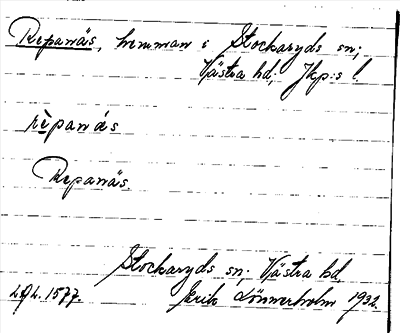 Repanäs, hemman i Stockaryds sn;
Västra hd; Jkp:s l.
rèpanás
Repanäs.
Stockaryds sn; Västra hd,
Erik Lönnerholm 1932.